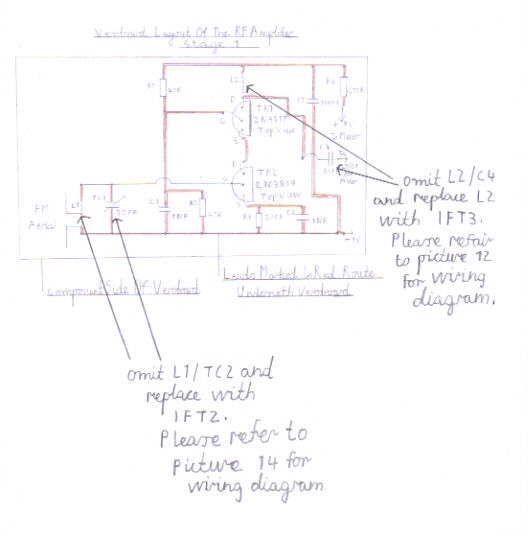 Veroboard Layout Of The RF Amplifier
Stage 1
R1
47K
L2
C5
R4
270R
D
TR1
2N3819
Top View
G
S
+9V
To Mixer
C4
TC1
To
Mixer
D
TR2
2N3819
Top View
G
S
FM
Aerial
L1
TC1
C1
1NF
R2
47K
R3
270R
C2
1NF
-9V
Component Side Of Veroboard
Leads Marked In Red Route
Underneth Veroboard
omit L2/C4
and replace L2
with IFT3.
Please refair
to picture 12
for wiring
diagram.
omit L1/TC2 and
replace with
IFT2.
Please refer to
Picture 14 for
wiring diagram